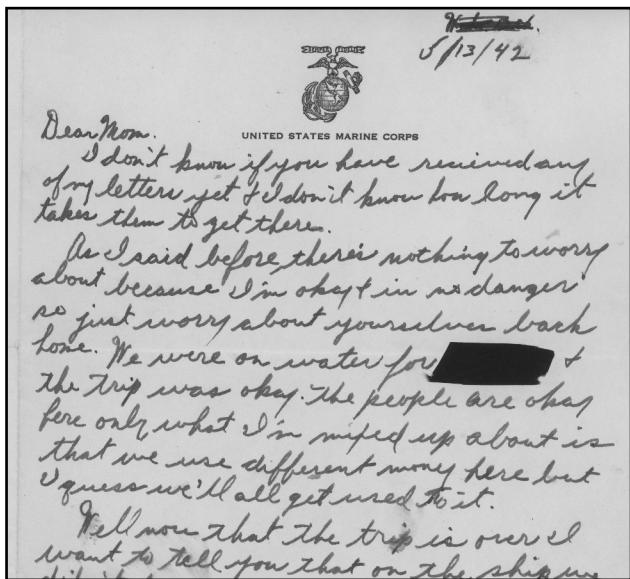 5/13/42
UNITED STATES MARINE CORPS
Dear Mom.
I don't know if you have recieved any
of my letters yet & I don't know how long it
takes them to get there.
As I said before there's nothing to worry
about because I'm okay & in no danger
so just worry about yourselves back
home. We were on water for &
the trip was okay. The people are okay
here only what I'm mixed up about is
that we use different money here but
I guess we'll all get used to it.
Well now that the trip is over I
want to tell you that on the ship we